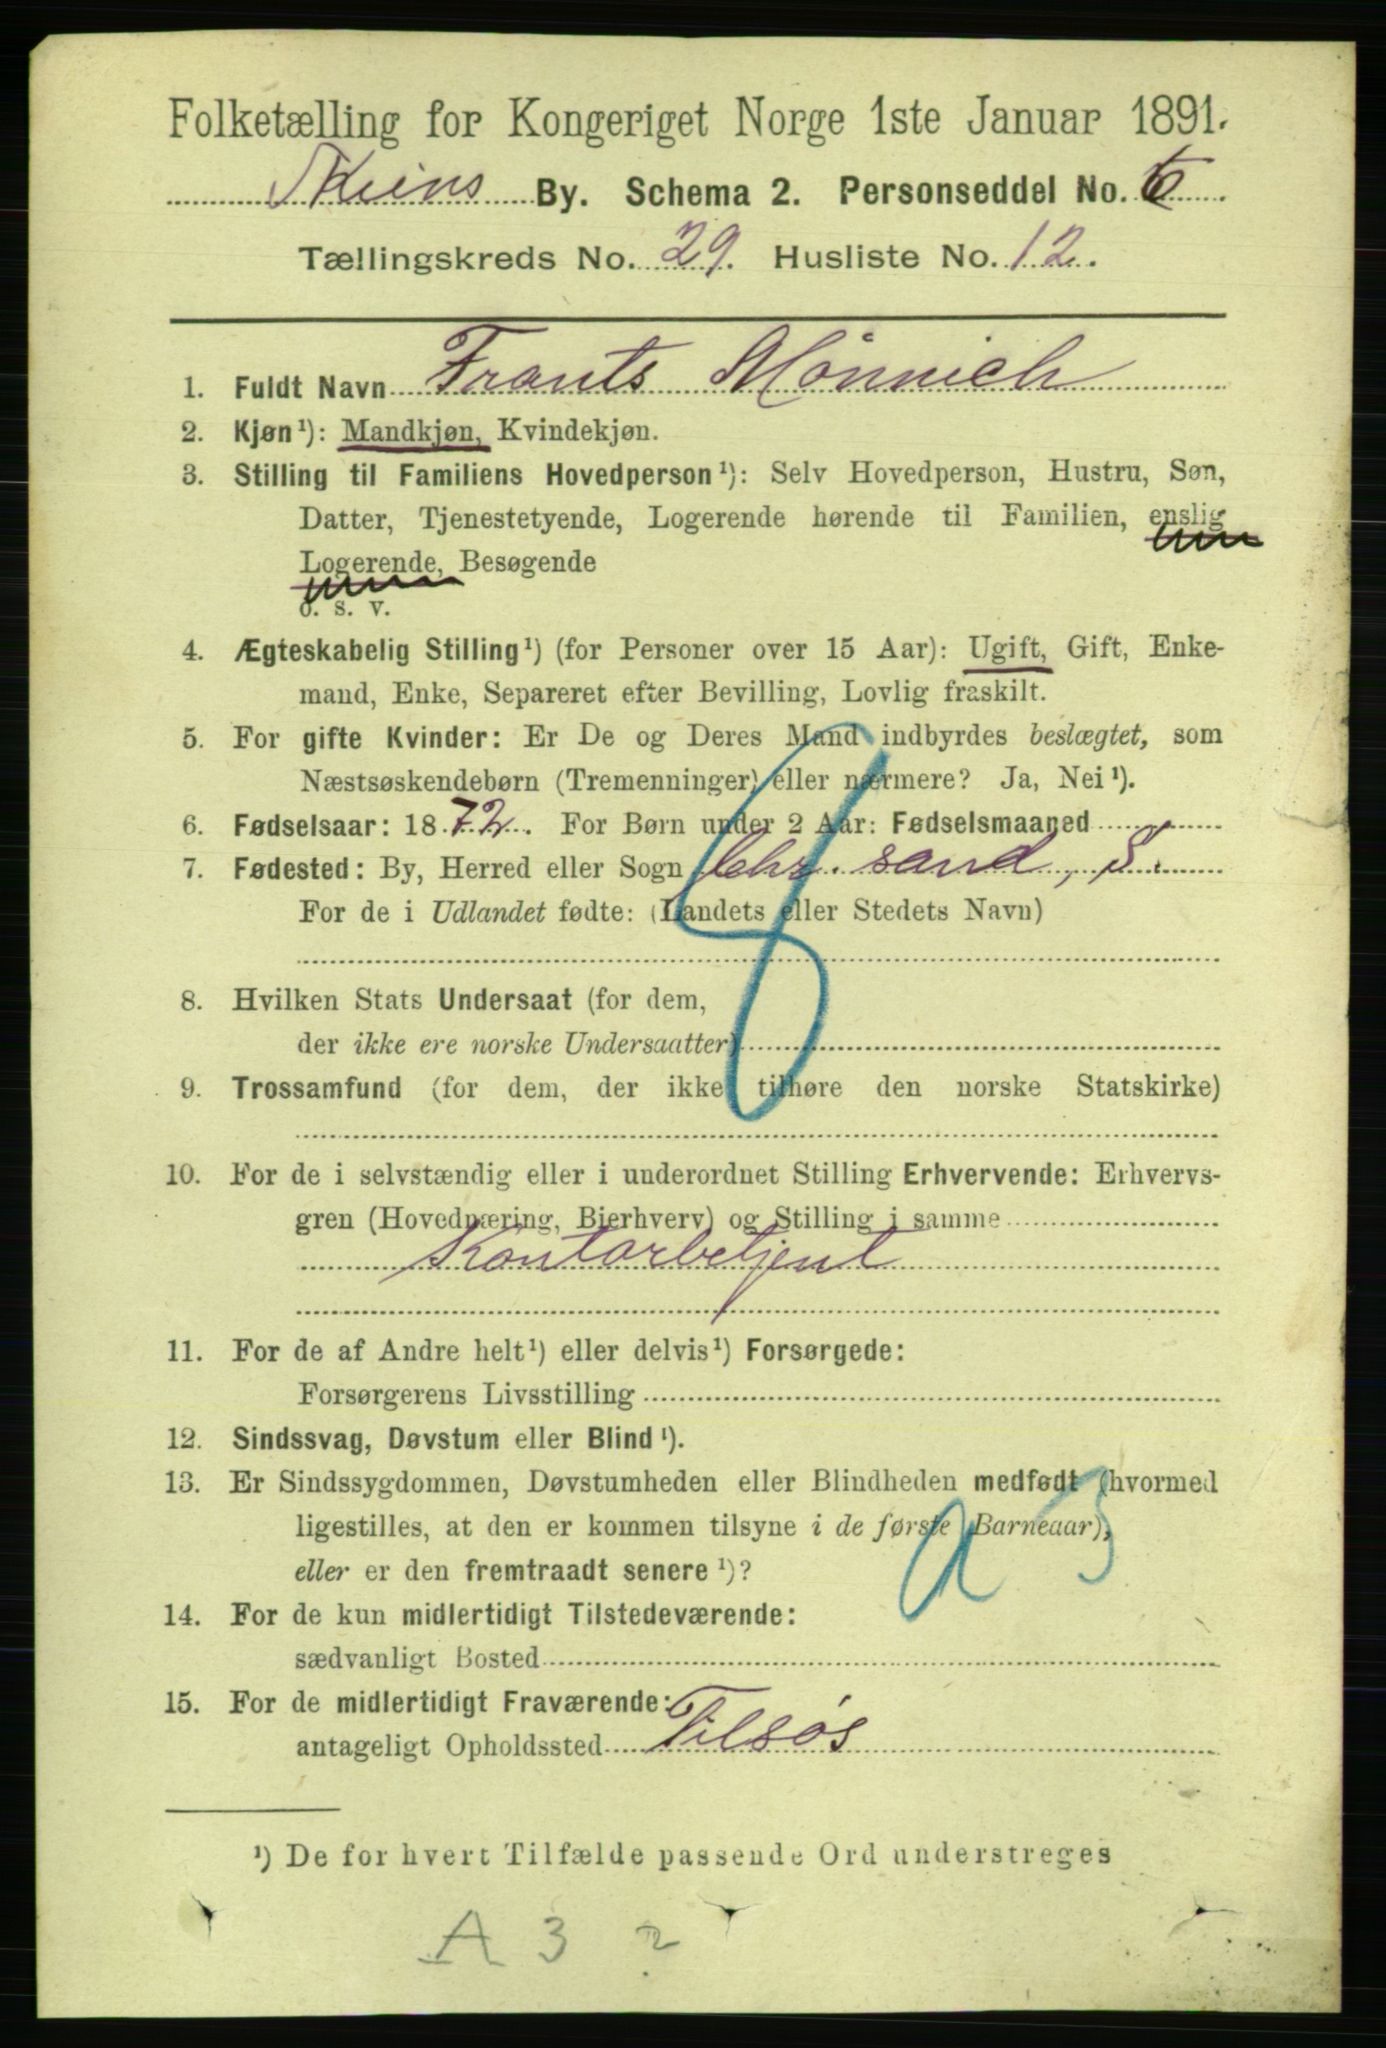 Folketælling for Kongeriget Norge 1ste Januar 1891.
Skiens By. Schema 2. Personseddel No. 6
Tællingskreds No. 29. Husliste No. 12.
1. Fuldt Navn Frants Mönnich
2. Kjøn ¹): Mandkjøn, Kvindekjøn.
3. Stilling til Familiens Hovedperson ¹): Selv Hovedperson, Hustru, Søn,
Datter, Tjenestetyende, Logerende hørende til Familien, enslig
Logerende, Besøgende
o. s. v.
4. Ægteskabelig Stilling ¹) (for Personer over 15 Aar): Ugift, Gift, Enke-
mand, Enke, Separeret efter Bevilling, Lovlig fraskilt.
5. For gifte Kvinder: Er De og Deres Mand indbyrdes beslægtet, som
Næstsøskendebørn (Tremenninger) eller nærmere? Ja, Nei ¹).
6. Fødselsaar: 1872. For Børn under 2 Aar: Fødselsmaaned
7. Fødested: By, Herred eller Sogn Chr.sand, S.
For de i Udlandet fødte: (Landets eller Stedets Navn)
8. Hvilken Stats Undersaat (for dem,
der ikke ere norske Undersaatter)
9. Trossamfund (for dem, der ikke tilhøre den norske Statskirke)
10. For de i selvstændig eller i underordnet Stilling Erhvervende: Erhvervs-
gren (Hovednæring, Bierhverv) og Stilling i samme
Kontorbetjent
11. For de af Andre helt ¹) eller delvis ¹) Forsørgede:
Forsørgerens Livsstilling
12. Sindssvag, Døvstum eller Blind ¹).
13. Er Sindssygdommen, Døvstumheden eller Blindheden medfødt (hvormed
ligestilles, at den er kommen tilsyne i de første Barneaar),
eller er den fremtraadt senere ¹)?
14. For de kun midlertidigt Tilstedeværende:
sædvanligt Bosted
15. For de midlertidigt Fraværende:
antageligt Opholdssted Tilsøs
¹) De for hvert Tilfælde passende Ord understreges
A 3 2